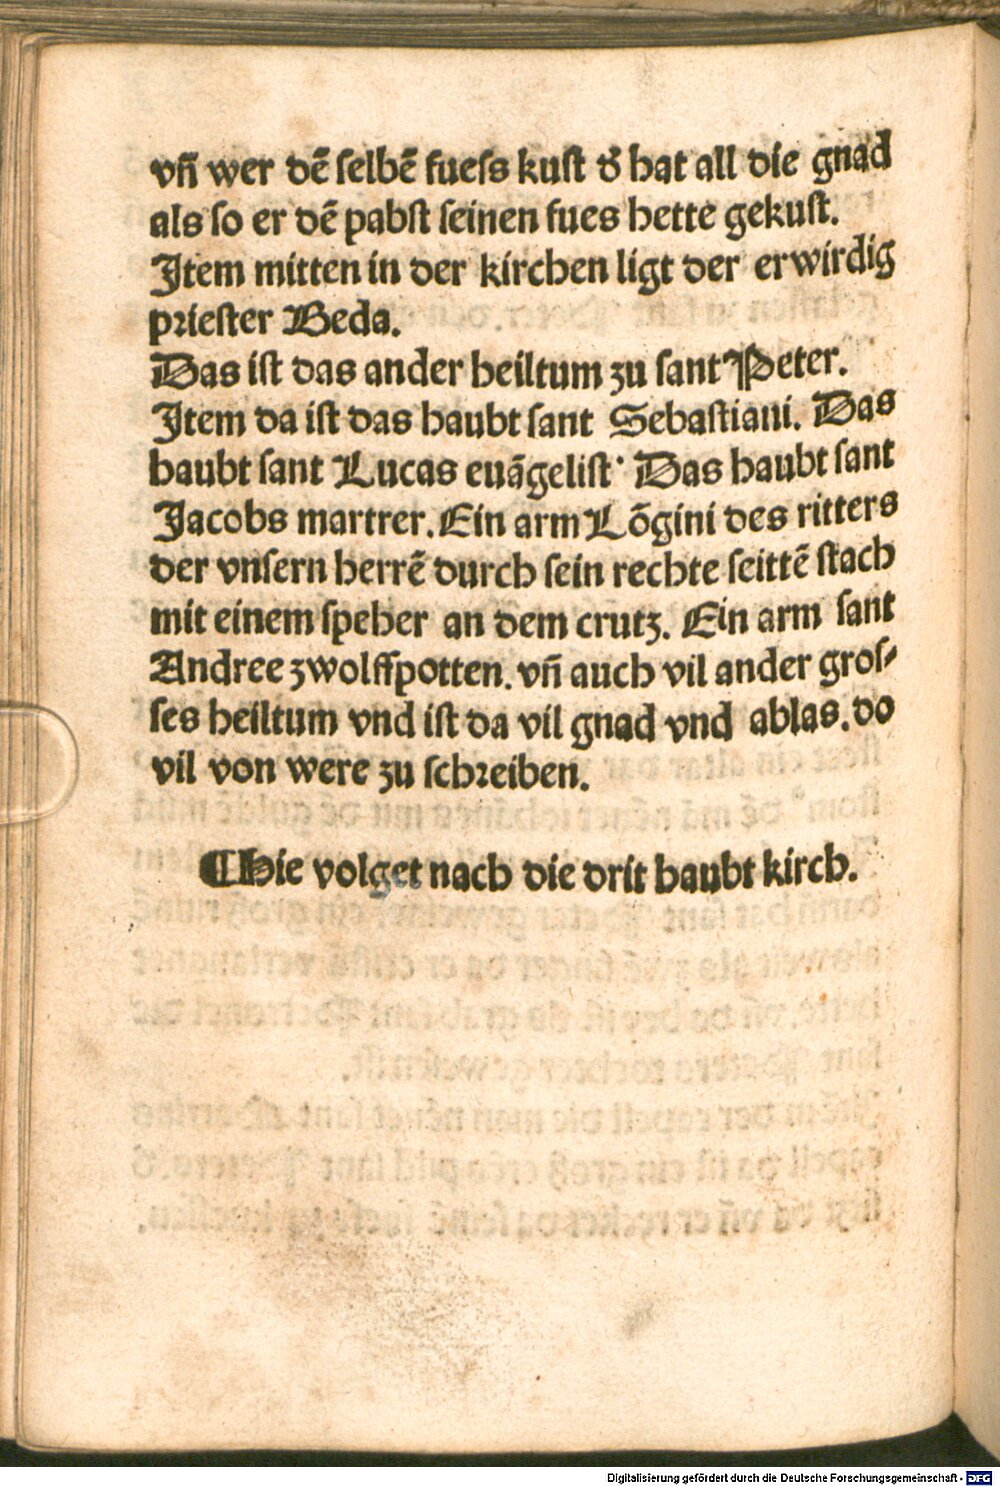 vñ wer dē ſelbē fueſs kuſt d̕ hat all die gnad
als ſo er dē pabſt ſeinen fues hette gekuſt.
Item mitten in der kirchen ligt der erwirdig
prieſter Beda.
Das iſt das ander heiltum zu ſant Peter.
Item da iſt das haubt ſant Sebaſtiani. Das
haubt ſant Lucas euāgeliſt· Das haubt ſant
Jacobs martrer. Ein arm Lōgini des ritters
der vnſern herrē durch ſein rechte ſeittē ſtach
mit einem ſpeher an dem crutz. Ein arm ſant
Andree zwolffpotten. vñ auch vil ander groſ⸗
ſes heiltum vnd iſt da vil gnad vnd ablas. do
vil von were zu ſchreiben.
¶ Hie volget nach die drit haubt kirch.
Digitalisierung gefördert durch die Deutsche Forschungsgemeinschaft - DFG